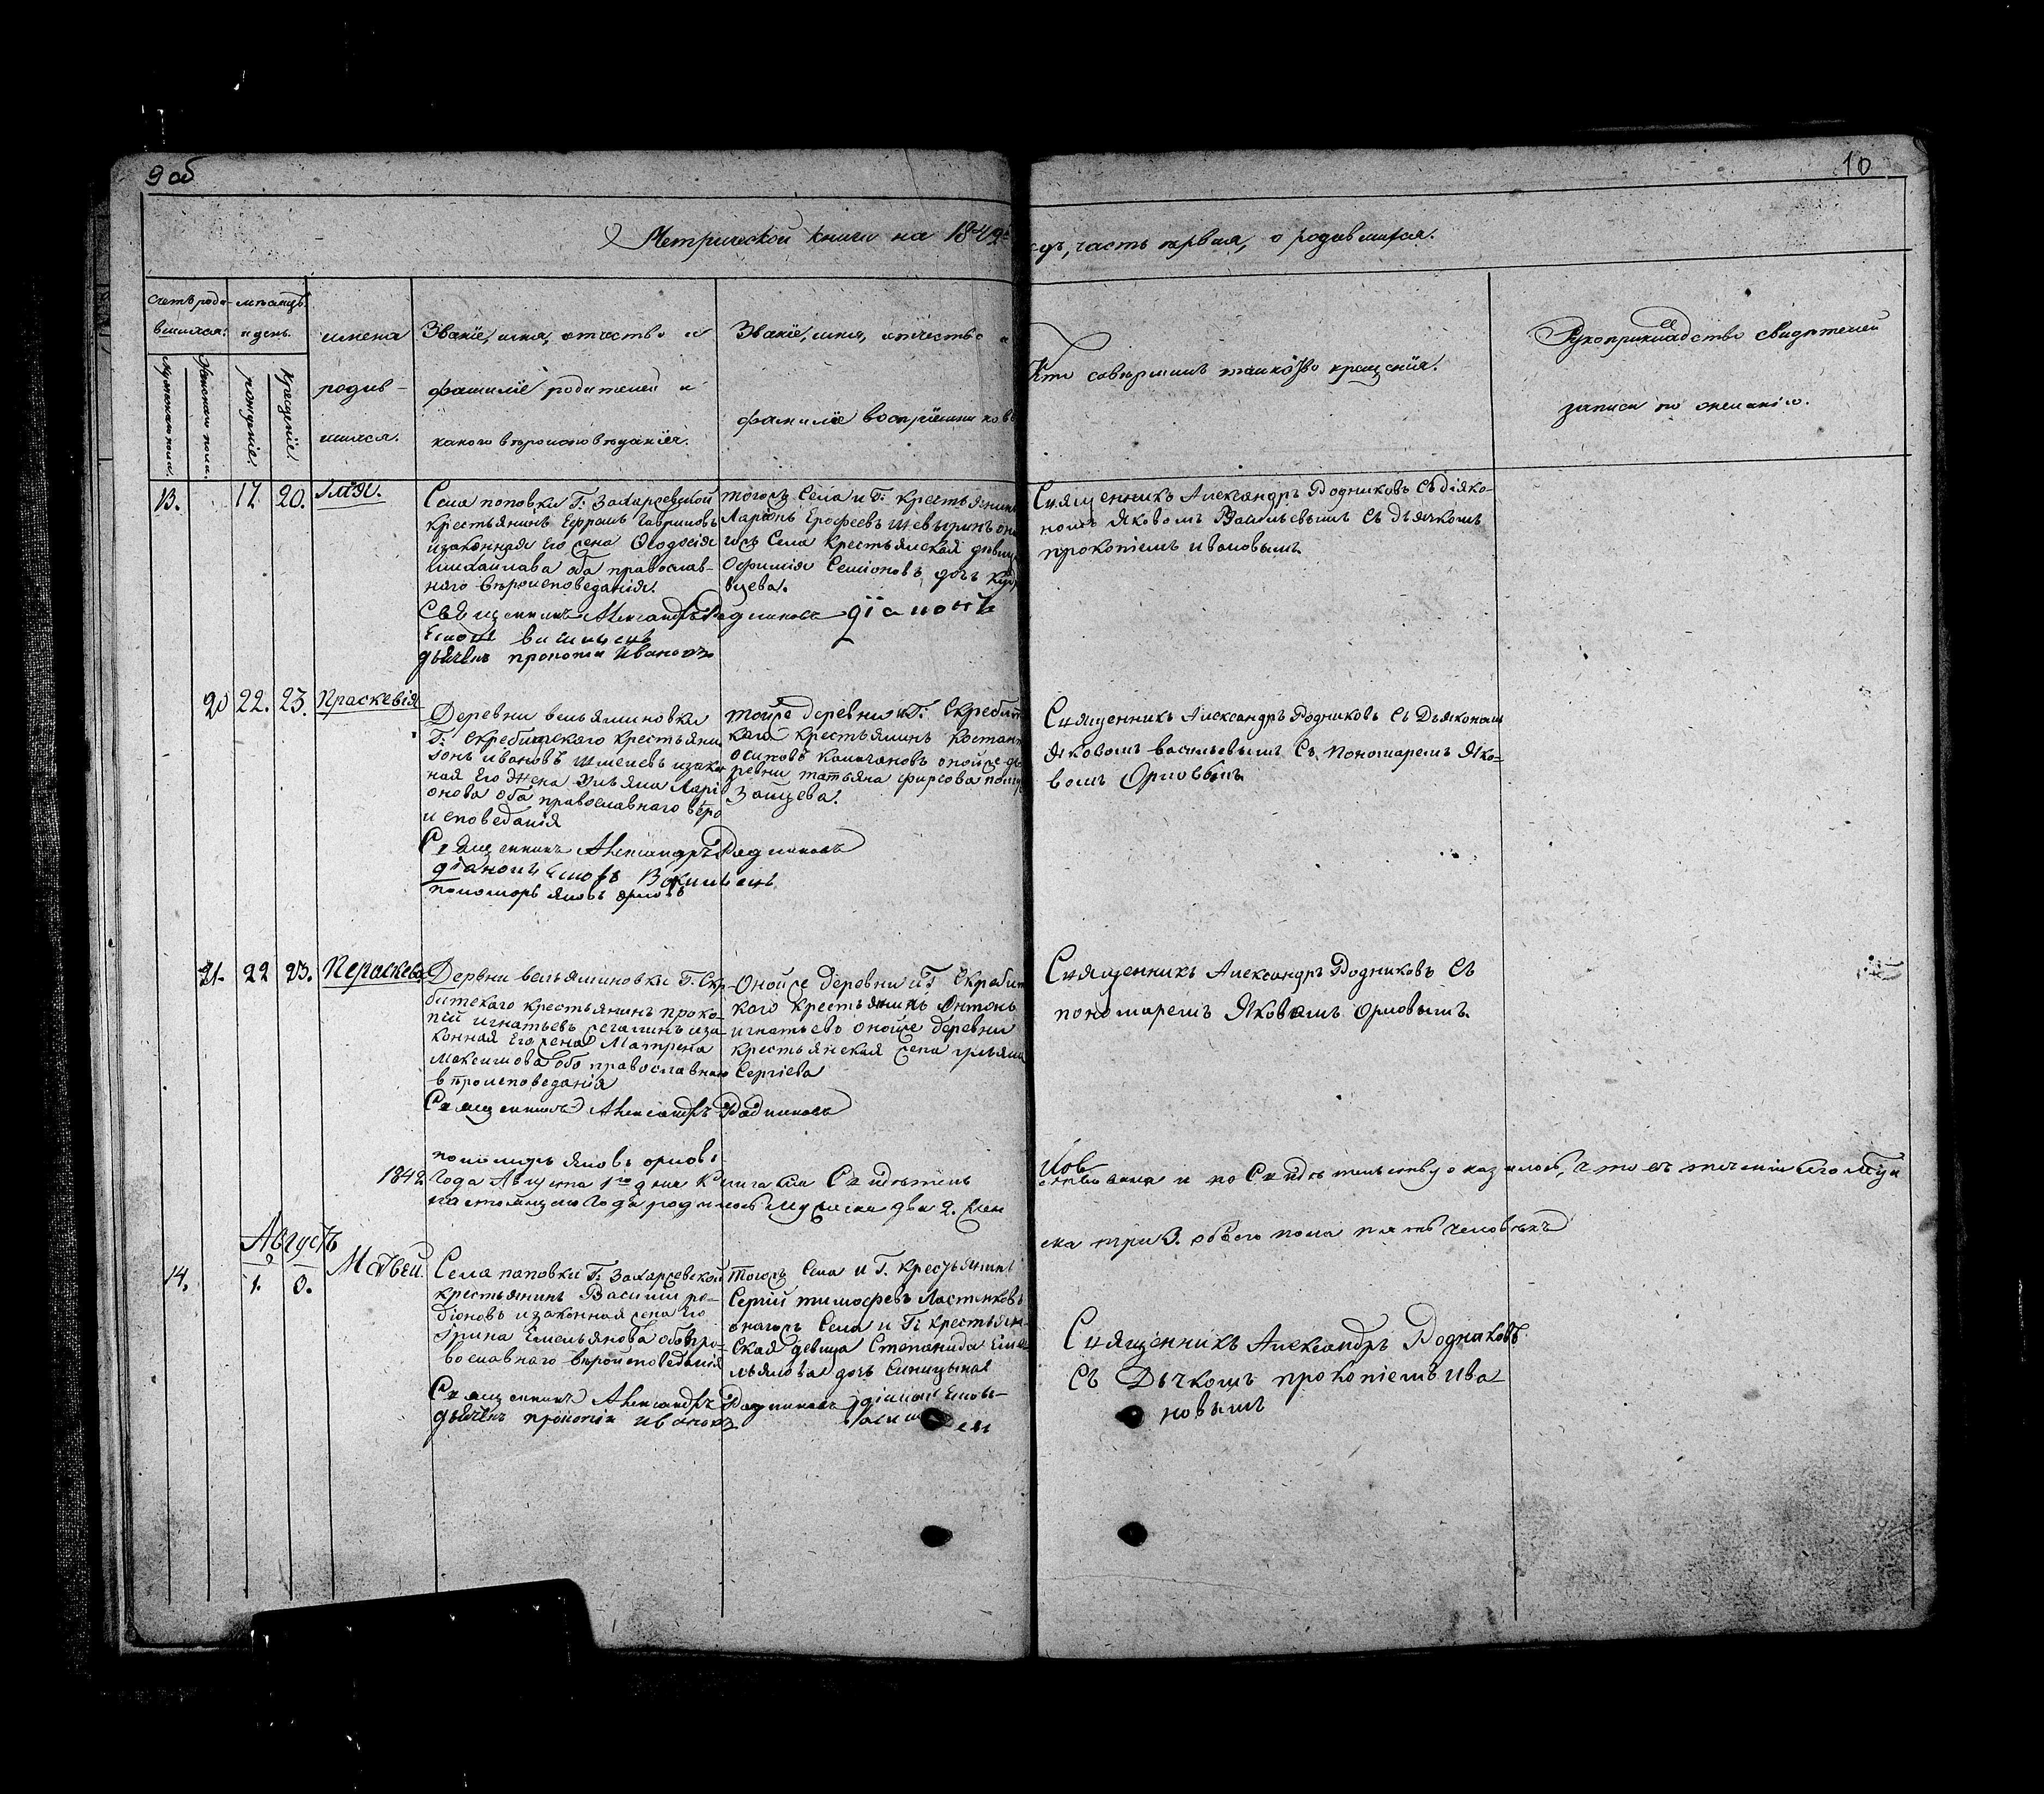 9 об
10
Метрической книги на 1842й
годъ, часть первая, о родившихся.
Счетъ роди-
вшихся.
мѣсяцъ
и день.
Мужеска пола.
Женска пола.
рожденіе.
крещеніе.
имена
родив-
шихся.
Званіе, имя, отчество и
фамиліе родителей и
какого вѣроисповѣданія.
Званіе, имя, отчество и
фамиліе воспріемниковъ
Кто совершилъ таинство крещенія.
Рукоприкладство свидѣтелей
записи по желанію.
13. 17. 20. Илія.
Села поповки Г: Захарьевской
крестьянинъ Ефремъ Гавриловъ
и законная его жена Ѳеодосія
Михайлова оба православ-
наго вѣроисповеданія.
Священникъ Александръ Родниковъ діаконъ
Яковъ Васильевъ
дьячекъ прокопій Ивановъ
тогожъ Села и Г: крестьянинъ
Ларіонъ Ерофеевъ Шевыринъ оно
гожъ Села крестьянская девица
Ефимія Семіонова дочь
Священникъ Александръ Родниковъ съ діяко-
номъ Яковомъ Васильевымъ съ дьячкомъ
прокопіемъ ивановымъ.
20 22. 23. Праскевія
Деревни вельяминовки
Г: Скребитскаго крестьянин
ивановъ Шмелевъ изакон
ная его жена Ульяна Ларі
онова оба православнаго вѣро
исповеданія
Священникъ Александръ Родниковъ
діаконъ Яковъ Васильевъ
пономарь яковъ орловъ
тойже деревни и Г: Скребит
каго крестьянинъ Костант
осиповъ Калачановъ онойже де
ревни татьяна фирсова
Зайцева.
Священникъ Александръ Родниковъ съ Дьякономъ
Яковомъ васильевымъ съ пономаремъ Яко-
вомъ Орловымъ
21. 22 23. Пераскева
Дервни вельяминовки Г. Скр-
битскаго крестьянинъ проко-
пій игнатьевъ иза-
конная Его жена Матрена
Максимова обо православнаго
вѣроисповеданія
Священникъ Александръ Родниковъ
пономарь яковъ орловъ
Онойже деревни и Г Скребит
каго крестьянинъ Антонъ
игнатьевъ онойже деревни
крестьянская жена ульяна
Сергіева
Священникъ Александръ Родниковъ съ
пономаремъ Яковомъ Орловымъ.
1842 Года Августа 1го дня Книга сія Свидѣтель
ствована и по Свидѣтельству оказалось, что въ теченіи Іюля
настоящаго Года родилось мужеска два 2. жен
ска три 3. обоего пола пять человѣкъ
Августъ
14. 1. 3. Матвѣй.
Села паповки Г: Захарьевской
крестьянинъ Василій ро-
діоновъ изаконная жена Его
Ірина Емельянова оба пра-
вославнаго вѣроисповеданія
Священникъ Александръ Родниковъ діаконъ Яковъ
Васильевъ
дьячекъ прокопій ивановъ
тогожъ Села и Г. Крестьянинъ
Сергій тимофевъ Ластенковъ
онагожъ Села и Г: крестьян-
ская девица Степанида Еме
льянова дочь Синицына
Священникъ Александръ Родниковъ
съ Дьчкомъ прокопіемъ ива
новымъ